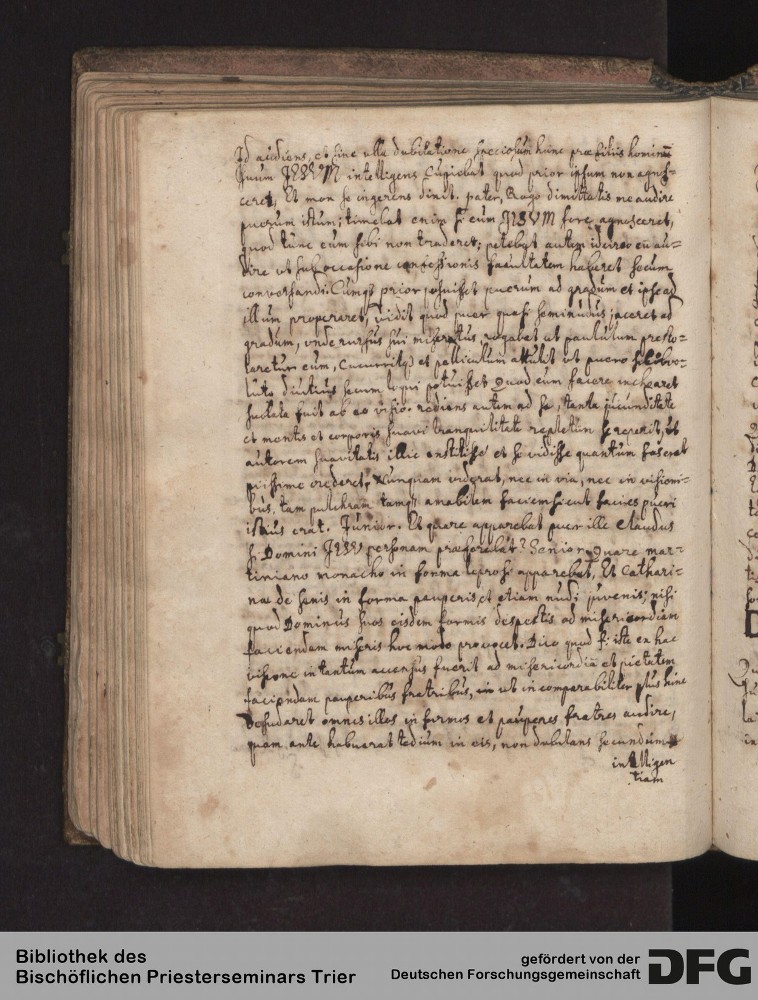 Id audiens, et sine ulla dubitatione speciosum hunc prae filiis hominū
suum JESUM intelligens Cupiebat quod prior ipsum non agnos-
ceret, Et mon se ingerens dixit. pater, Rogo dimittatis me audire
puerum istum; timebat enim si eum JESUM fore agnosceret,
quod tunc eum sibi non traderet; petebat autem idcirco eū au-
dire ut sub occasione confessionis facultatem haberet secum
conversandi. Cumq3 prior posuisset puerum ad gradum et ipse ad
illum properaret, vidit quod puer quasi seminudus jaceret ad
gradum, unde rursus sui misertus, rogabat ut paululum presto-
laretur eum, Cucurritq3 et palliculum attulit ut puero
diutius secum loqui potuisset Quod cum facere incheparet
sublata fuit ab eo visio. rediens autem ad se, tanta jucunditate
et mentis et corporis suavi tranquilitate repletum se reperit, ut
autorem suavitatis illic exstitisse et se vidisse quantum fas erat
piissime crederet, Nunquam viderat, nec in via, nec in visioni-
bus, tam pulchram tamq3 amabilem faciem sicut facies pueri
istius erat. Junior. Et quare apparebat puer ille claudus
si Domini JESU personam praeferebat? Senior Quare mar-
tiniano monacho in forma leprosi apparebat, Et Cathari-
nae de senis in forma pauperis et etiam nudi juvenis; nisi
quod Dominus suos eisdem formis despectis ad misericordiam
faciendam miseris hoc modo provocet. Dico quod si iste ex hac
visione in tantum accensus fuerit ad misericordiā et pietatem
faciendam pauperibus fratribus, ut incomparabiliter plus hinc
desudaret omnes illos infirmos et pauperes fratres audire,
quam ante habuerat tedium in eis, non dubitans secundum
intelligen
tiam
Bibliothek des
Bischöflichen Priesterseminars Trier
gefördert von der
Deutschen Forschungsgemeinschaft
DFG